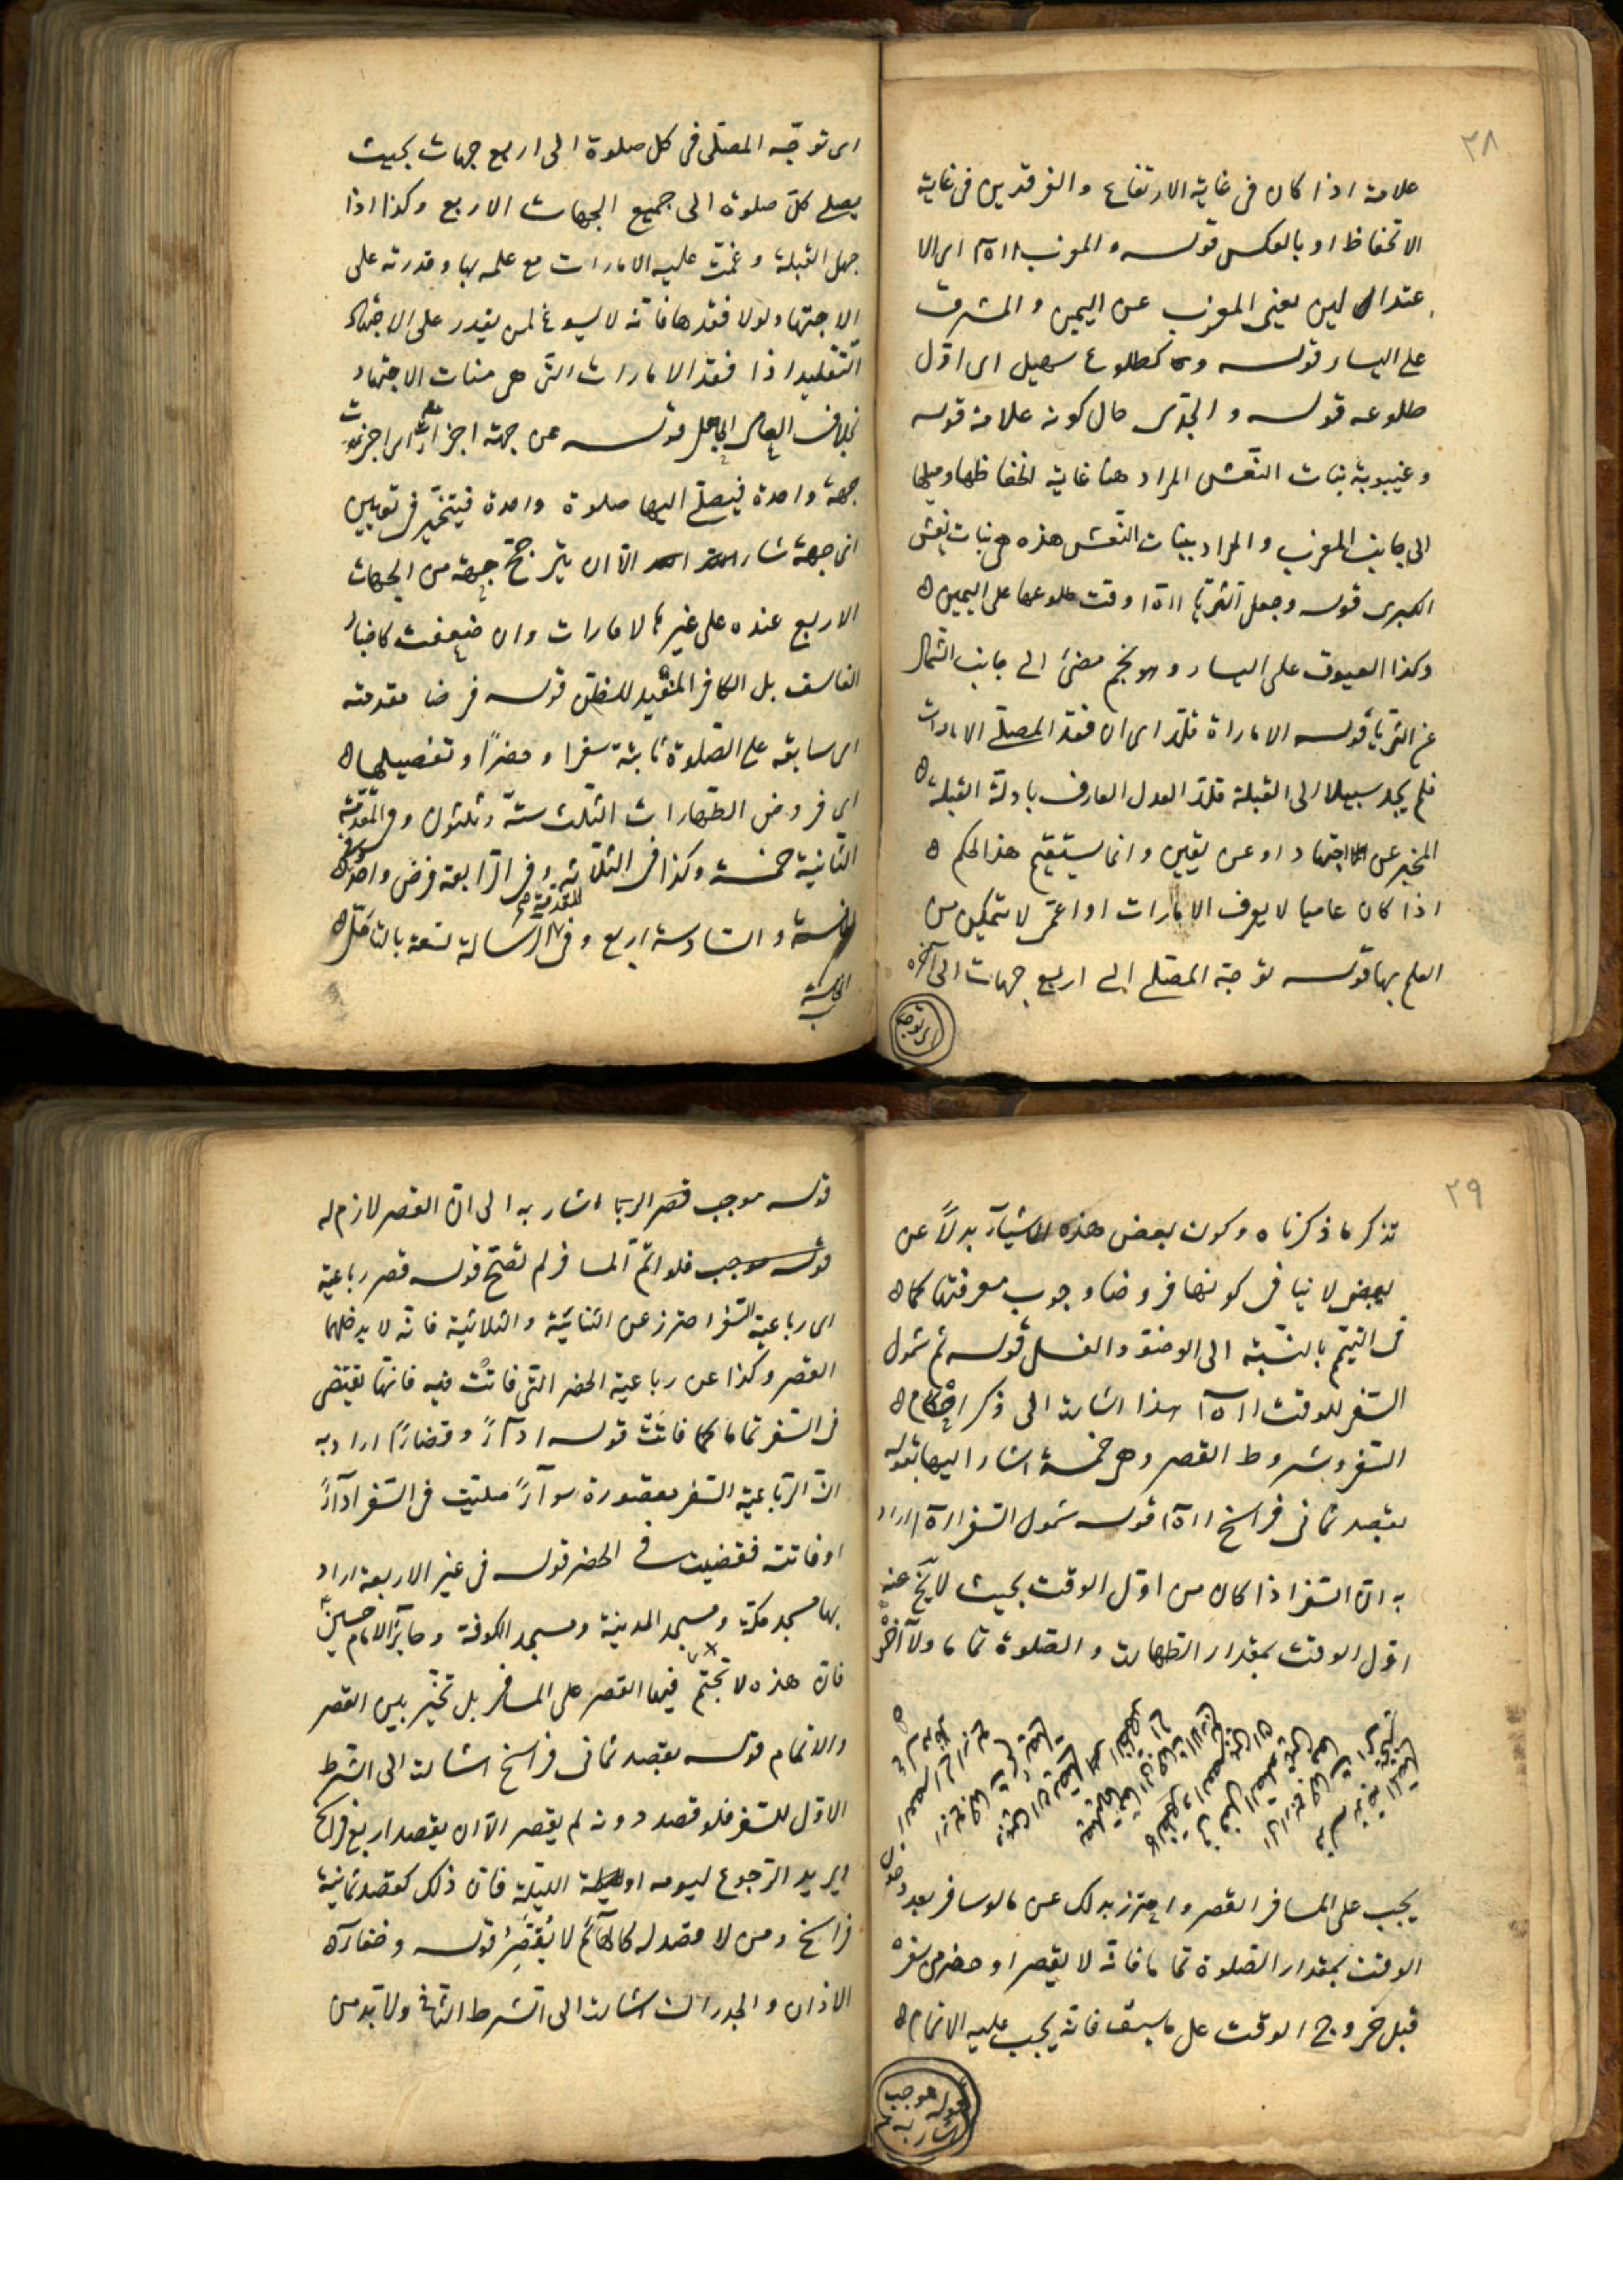 ٣٨
علامة اذا كان فى غاية الارتفاع والفرقدين فى غاية
الانخفاظ او بالعكس قوله والمغرب ااه اى الا
عتدالين يعنى المغرب عن اليمين والمشرق
على اليسار قوله وكطلوع سهيل اى اول
طلوعه قوله والجدى حال كونه علامة قوله
وغيبوبة بنات النعش المراد هنا غاية انخفاظها وميلها
الى جانب المغرب والمراد ببنات النعش هذه هى بنات نعش
الكبرى قوله وجعل الثريا ااه وقت طلوعها على اليمين
وكذا العيوق على اليسار وهو نجم مضئ الى جانب الشمال
عن الثريا قوله الاماراة قلد اى ان فقد المصلى الامارات
فلم يجد سبيلا الى القبلة قلد العدل العارف بادلة القبلة
المخبر عن اجتهاد او عن يقين وانما يستقيم هذا الحكم
اذا كان عاميا لا يعرف الامارات او اعمى لا يتمكن من
العلم بها قوله توجه المصلى الى اربع جهات الى آخره
اى توجه
اى توجه المصلى فى كل صلوة الى اربع جهات بحيث
يصلى كل صلوة الى جميع الجهات الاربع وكذا اذا
جهل القبلة وغمت عليه الامارات مع علمه بها وقدرته على
الاجتهاد لولا فقدها فانه لا يسوغ لمن يقدر على الاجتهاد
التقليد اذا فقد الامارات التى هى الاجتهاد
بخلاف العامى الجاهل قوله عن جهة اجزأت اى اجزئت
جهة واحدة فيصلى اليها صلوة واحدة فيتخير فى تعيين
اى جهة شاء الا ان يترجح جهة من الجهات
الاربع عنده على غيرها لامارات وان ضعفت كاخبار
الفاسق بل الكافر المفيد للظن قوله فرضا مقدمته
اى سابقه على الصلوة ثابثة سفرا وحضرًا وتفصيلها
اى فروض الطهارات الثلث ستة وثلثون وفى المقدمة
الثانية خمسة وكذا فى الثلاثة وفى الرابعة فرض واحد وفى
الخامسة والسادسة اربع وفى الرسالة تسعة بالتامل
للمقدمة
الخامسة
٢٩
تذكر ما ذكرناه وكون بعض هذه الاشياء بدلاً عن
بعض لا ينافى كونها فروضا وجوب معرفتها كما
فى التيمم بالنسبة الى الوضو والغسل قوله ثم شمول
السفر للوقت ااه هذا اشارة الى ذكر احكام
السفر وشروط القصر وهى خمسة اشار اليها بقوله
بقصد ثمانى فراسخ ااه قوله شمول السفر ااه اراد
به ان السفر اذا كان من اول الوقت بحيث لا يخ عنه
اول الوقت بمقدار الطهارت والصلوة تماما ولا آخر
يجب على المسافر القصر واحترز بذلك عن ما لو سافر بعد دخول
الوقت بمقدار الصلوة تماما فانه لا يقصر او حضر من سفره
قبل خروج الوقت على ما سبق فانه يجب عليه الاتمام
قوله موجب اشار به
قوله موجب قصر الربا اشار به الى ان القصر لازم له
قوله موجب فلو اتم المسافر لم تصح قوله قصر رباعية
اى رباعية السفر احترز عن الثنائية والثلاثية فانه لا يدخلهما
القصر وكذا عن رباعية الحضر التى فاتت فيه فانها تقتضى
فى السفر تماما كما فاتت قوله اداءً وقضاءً اراد به
ان الرباعية السفر مقصورة سواءً صليت فى السفر اداءً
او فاتته فقضيت فى الحضر قوله فى غير الاربعة اراد
بها مسجد مكة ومسجد المدينة ومسجد الكوفة وحاير الامام حسين
فان هذه لا تحتم فيها القصر على المسافر بل تخير بين القصر
والاتمام قوله بقصد ثمانى فراسخ اشارت الى الشرط
الاول للسفر فلو قصد دونه لم يقصر الا ان يقصد اربع فراسخ
ويريد الرجوع ليومه او ليلة فان ذلك كقصد ثمانية
فراسخ ومن لا قصد له كالهائم لا يقصر قوله وخفاء
الاذان والجدران اشارت الى الشرط الثانى ولا بد من